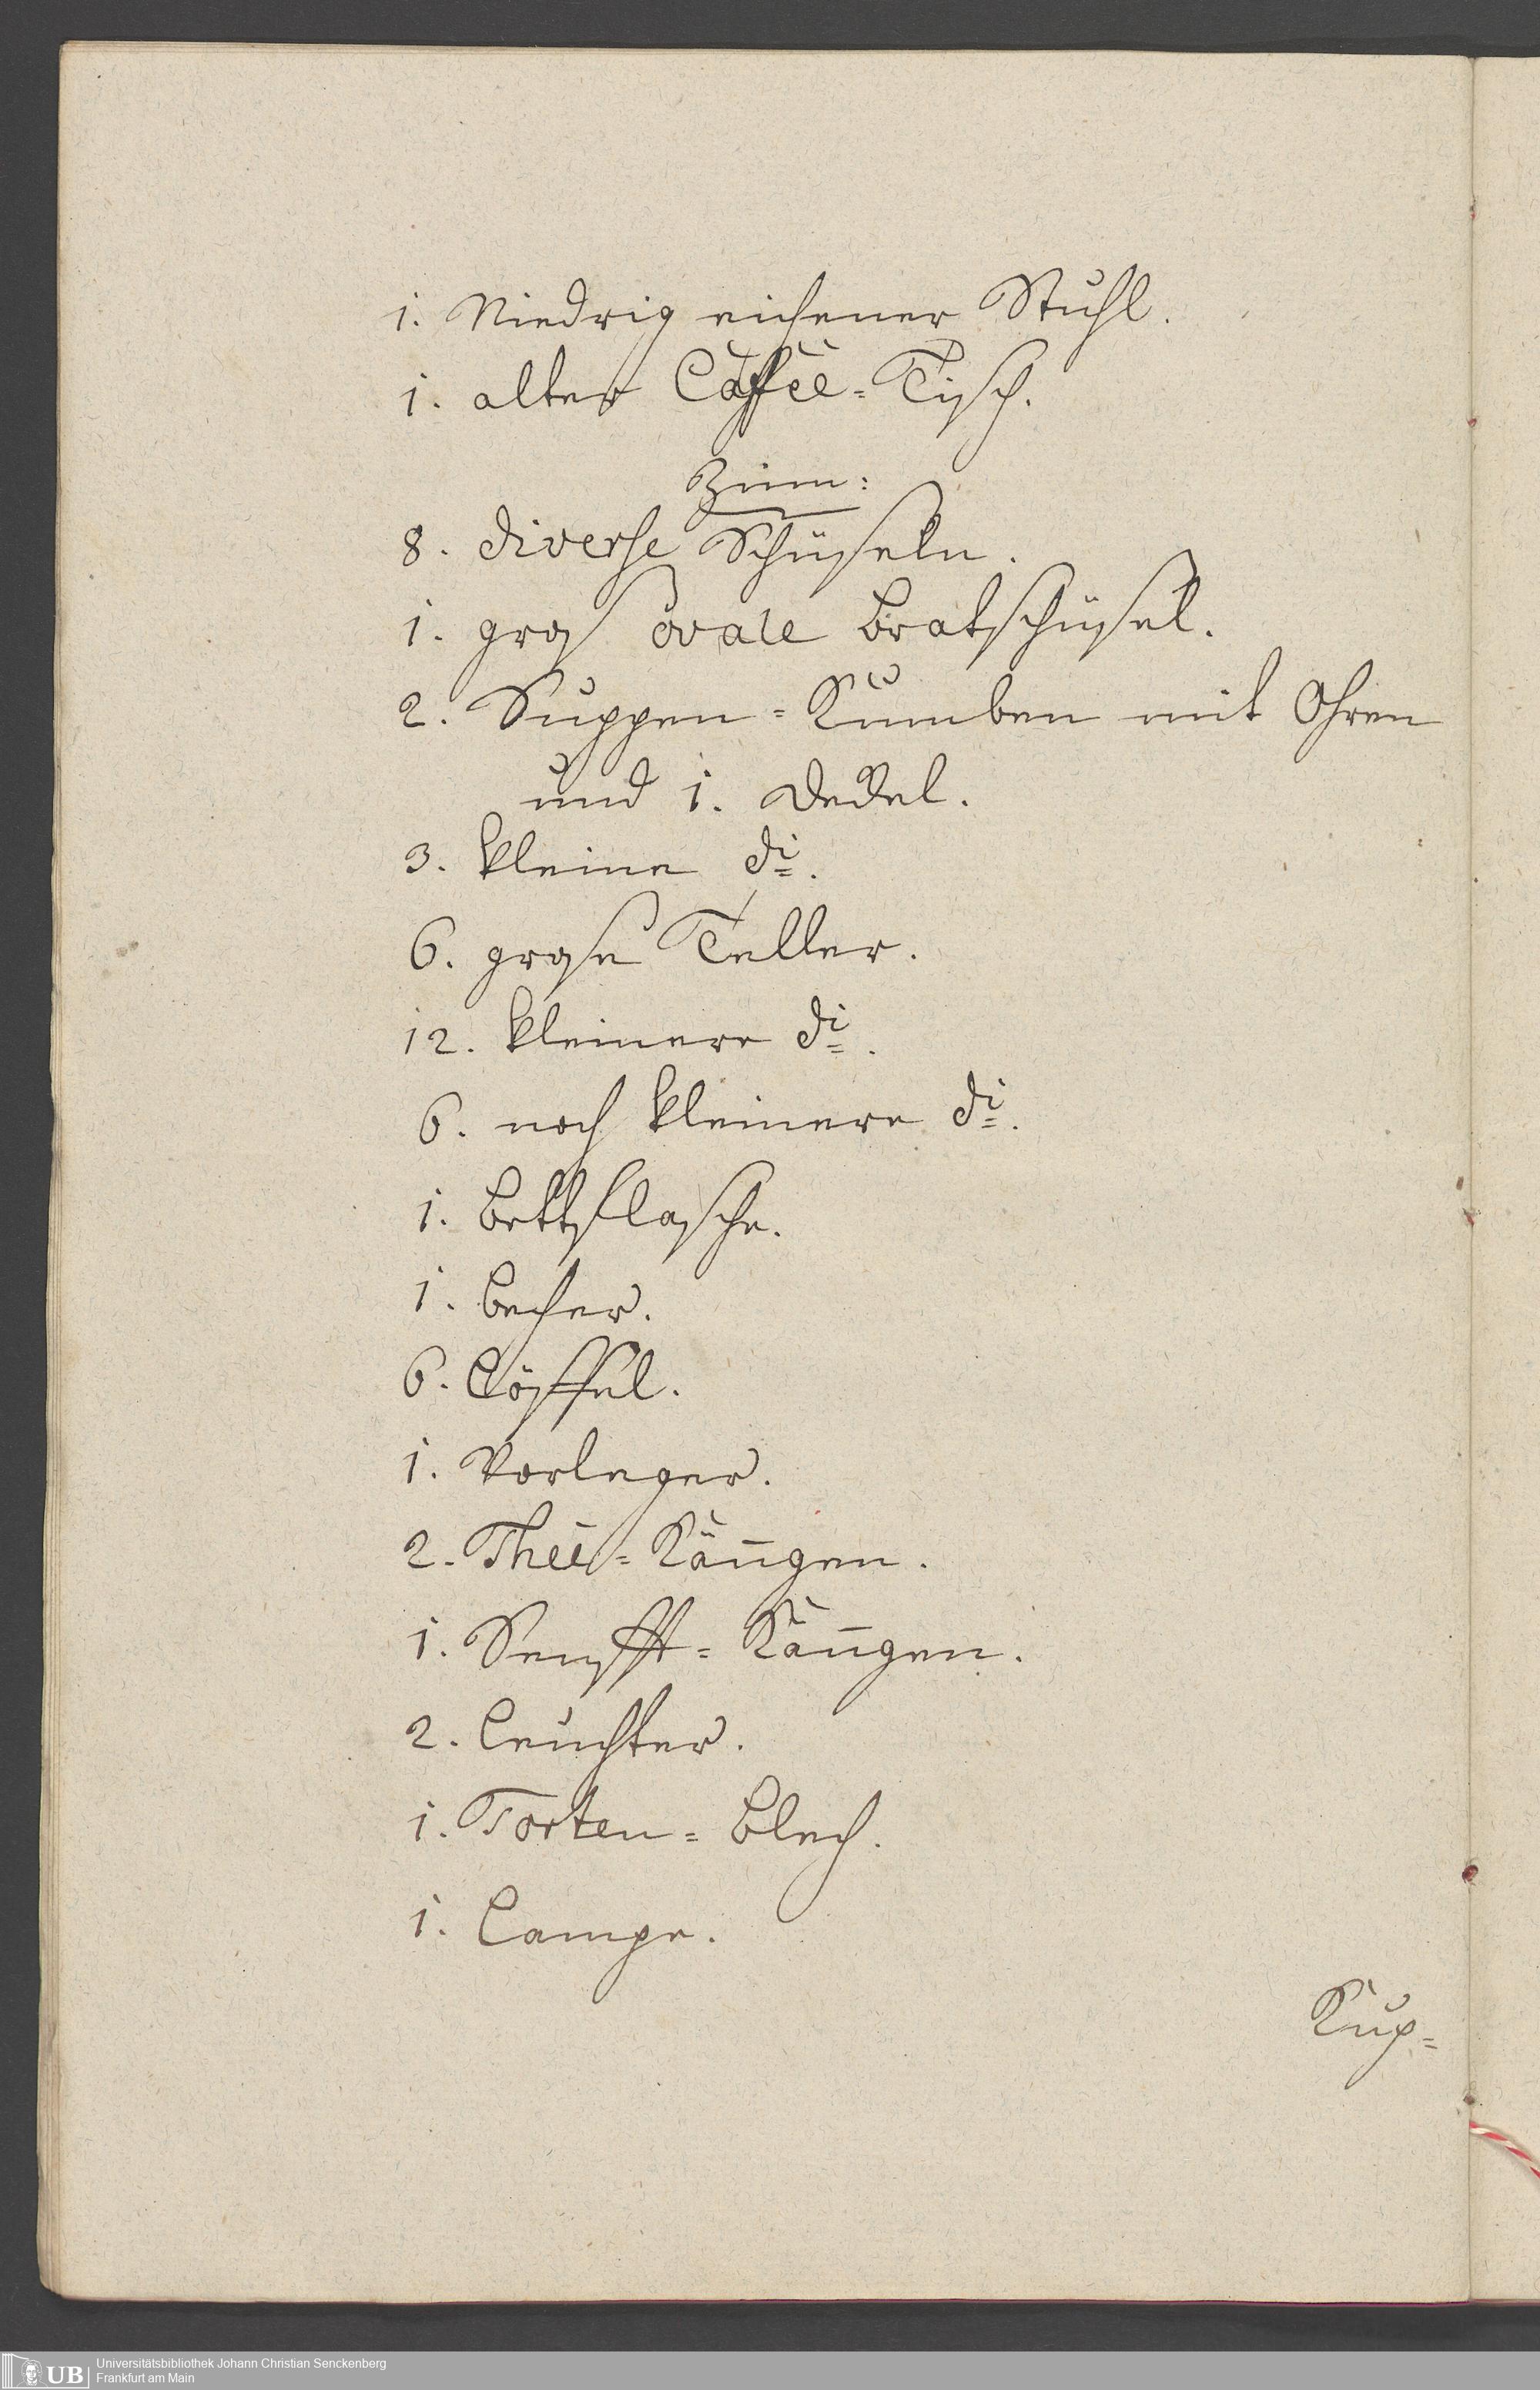 1. Niedrig eichener Stuhl.
1. alter Caffée-Tisch.
Zinn:
8. diverse Schüseln.
1. gros ovale Bratschüsel.
2. Suppen-Kumben mit Ohren
und 1. Deckel.
3. kleine di.
6. grose Teller.
12. kleinere di.
6. noch kleinere di.
1. Bettflasche.
1. Becher.
6. Löffel.
1. Vorleger.
2. Theé-Kan̄gen.
1. Senfft-Kän̄gen.
2. Leuchter.
1. Torten-Blech.
1. Lampe.
Kup-
Universitätsbibliothek Johann Christian Senckenberg
UB Frankfurt am Main